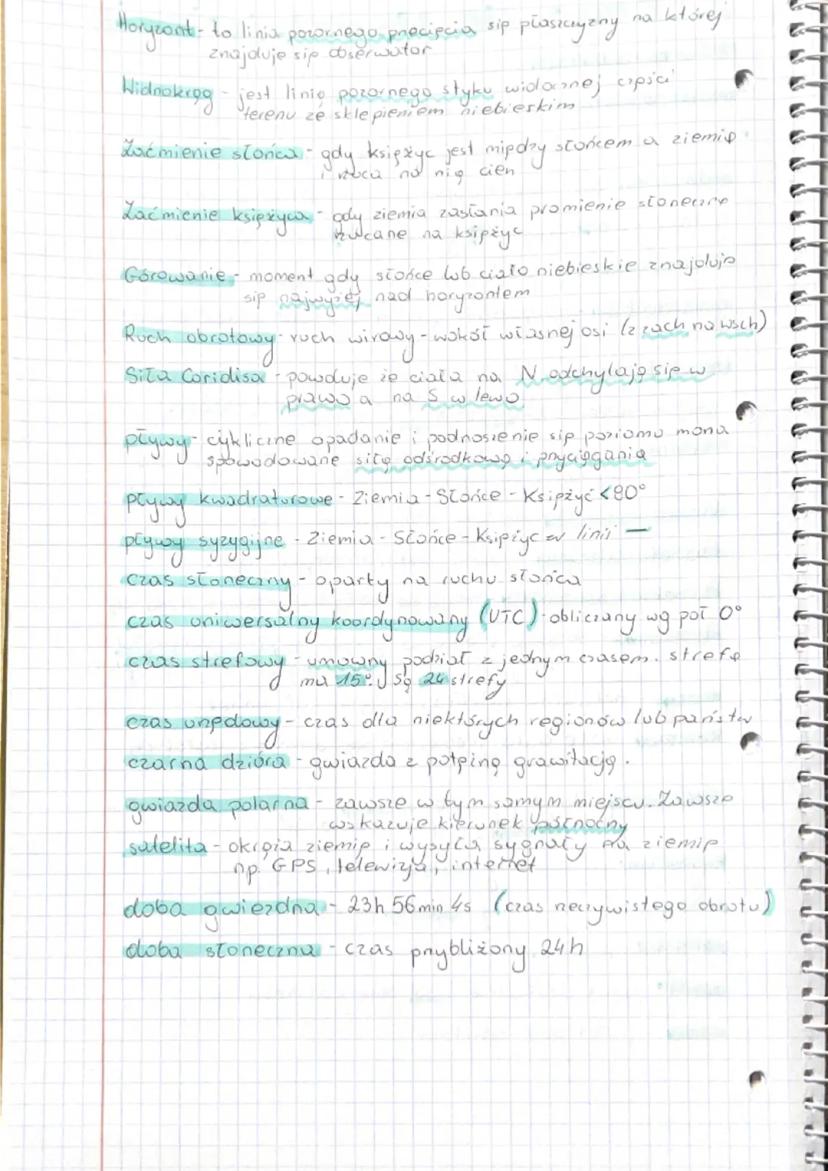 Horyzont - to linia pozornego przecięcia się płaszczyzny na której
znajduje się obserwator
Widnokrąg - jest linią pozornego styku widocznej części
terenu ze sklepieniem niebieskim
Zaćmienie słońca - gdy księżyc jest między słońcem a ziemię
i rzuca na nią cien
Zaćmienie księżyca - gdy ziemia zasłania promienie słoneczne
rzucane na księżyc
Górowanie - moment gdy słońce lub ciało niebieskie znajduje
się najwyżej nad horyzontem
Ruch obrotowy - ruch wirowy - wokół własnej osi (z zach na wsch)
Siła Coriolisa - powoduje że ciała na N odchylają się w
prawo a na S w lewo
pływy - cykliczne opadanie i podnoszenie się poziomu morza
spowodowane siłą odśrodkową i przyciągania
pływy kwadraturowe - Ziemia - Słońce - Księżyc <90°
pływy syzygijne - Ziemia - Słońce - Księżyc w linii —
czas słoneczny - oparty na ruchu słońca
czas uniwersalny koordynowany (UTC) - obliczany wg poł 0°
czas strefowy - umowny podział z jednym czasem. strefa
ma 15°. Są 24 strefy
czas urzędowy - czas dla niektórych regionów lub państw
czarna dzióra - gwiazda z potęiną grawitacją.
gwiazda polarna - zawsze w tym samym miejscu. Zawsze
wskazuje kierunek północny
satelita - okrąża ziemię i wysyła sygnały na ziemię
np. GPS, telewizja, internet
doba gwiezdna - 23h 56min 4s (czas rzeczywistego obrotu)
doba słoneczna - czas przybliżony 24h